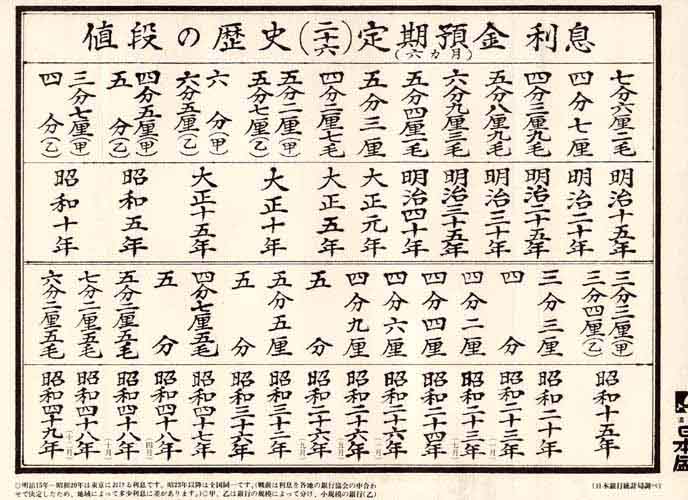 値段の歴史(二十六)定期預金利息
(六カ月)
七分六厘二毛
四分七厘
四分三厘九毛
五分八厘九毛
六分九厘三毛
五分四厘二毛
五分三厘
四分二厘七毛
五分二厘(甲)
五分七厘(乙)
六分(甲)
六分五厘(乙)
四分五厘(甲)
五分(乙)
三分七厘(甲)
四分(乙)
明治十五年
明治二十年
明治二十五年
明治三十年
明治三十五年
明治四十年
大正元年
大正五年
大正十年
大正十五年
昭和五年
昭和十年
三分三厘(甲)
三分四厘(乙)
三分三厘
四分
四分二厘
四分四厘
四分六厘
四分九厘
五分
五分五厘
五分
四分七厘五毛
五分
五分二厘五毛
七分二厘五毛
六分二厘五毛
昭和十五年
昭和二十年
昭和二十三年
昭和二十三年(七月)
昭和二十四年
昭和二十六年
昭和二十六年(五月)
昭和二十六年(九月)
昭和三十二年
昭和三十六年
昭和四十七年
昭和四十八年(四月)
昭和四十八年(十月)
昭和四十八年(十二月)
昭和四十九年
○明治15年－昭和20年は東京における利息です。昭和23年以降は全国同一です。(戦前は利息を各地の銀行協会の申合わ
せで決定したため、地域によって多少利息に差があります。)○甲、乙は銀行の規模によって分け、小規模の銀行(乙)
(日本銀行統計局調べ)
日本盛